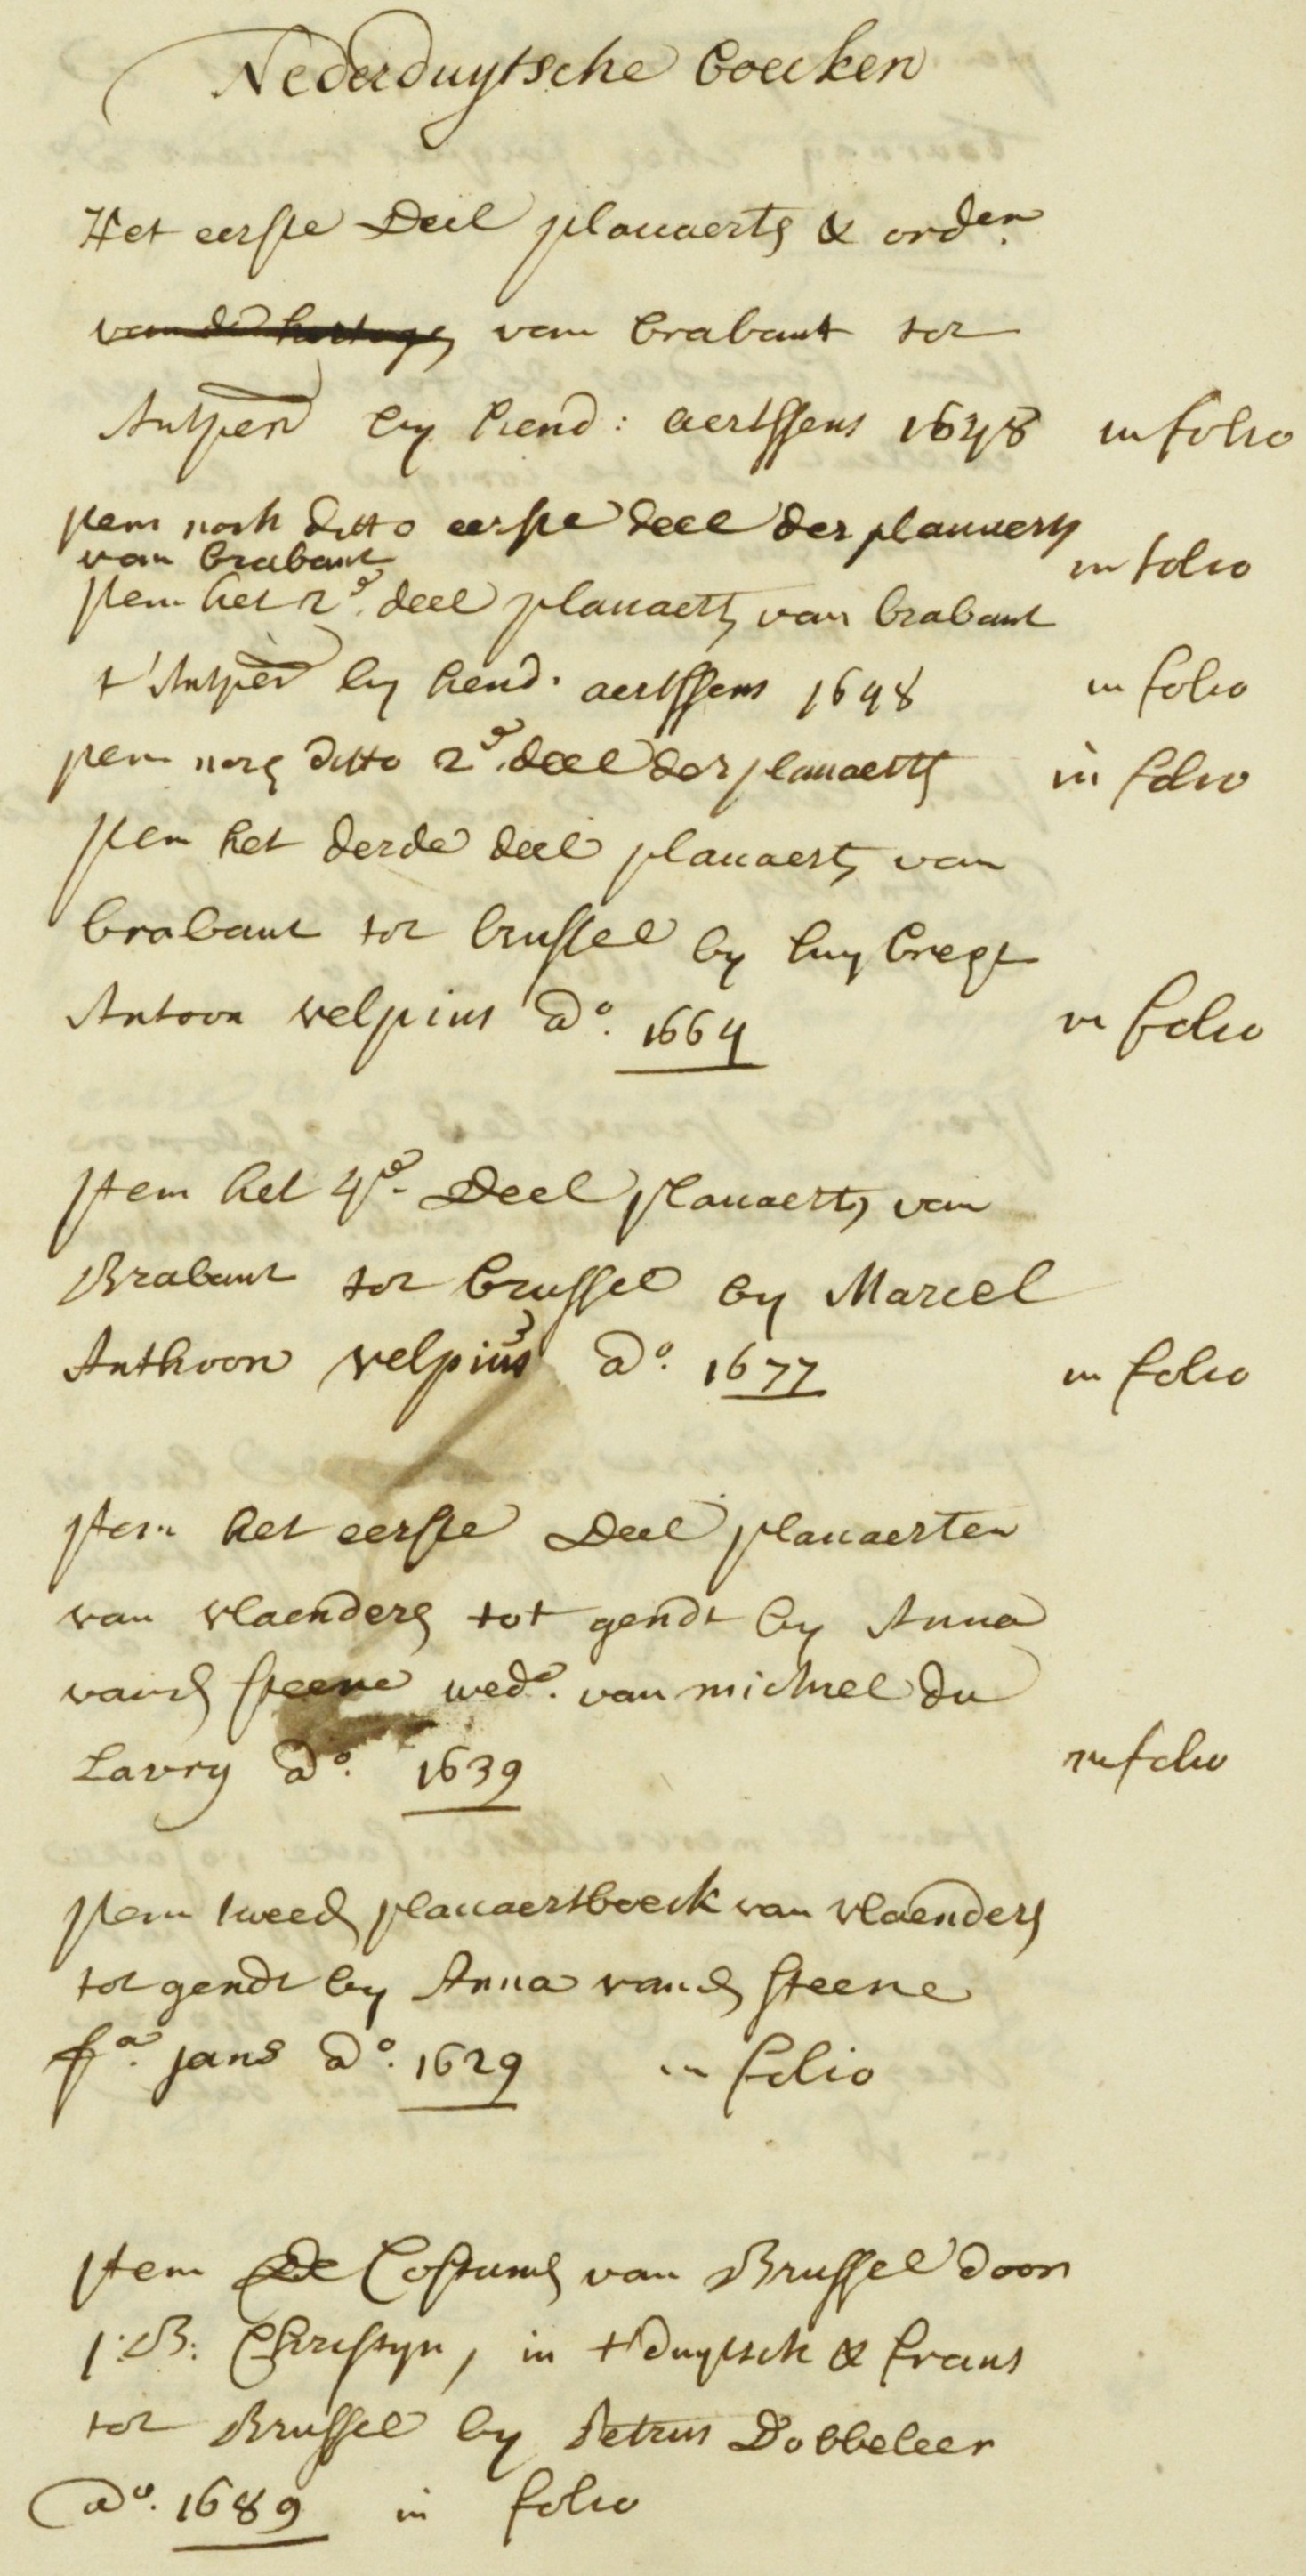 Nederduytsche boecken
Het eerste Deel placcaerts & orden.
van de hertoge van brabant tot
Antpen by hend: aertssens 1648 in folio
Item noch ditto eerste deel der placcaerts
van brabant in folio
Item het 2e. deel placcaerts van brabant
t'Antpen by hend. aertssens 1648 in folio
Item noch ditto 2e. deel der placcaerts in folio
Item het derde deel placcaerts van
brabant tot brussel by huybregt
Antoon velpius ao. 1664 in folio
Item het 4de. Deel placcaerts van
Brabant tot brussel by Marcel
Anthoon velpius ao. 1677 in folio
Item het eerste Deel placcaerten
van vlaenders tot gendt by Anna
vand steene wede. van michiel du
Lavry ao. 1639 in folio
Item tweede placcaertboeck van vlaenders
tot gendt by Anna vand steene
fa. jans ao. 1629 in folio
Item de Costumen van Brussel door
J: B: Christyn, in t'duytsch & frans
tot Brussel by Petrus Dobbeleer
ao. 1689 in folio